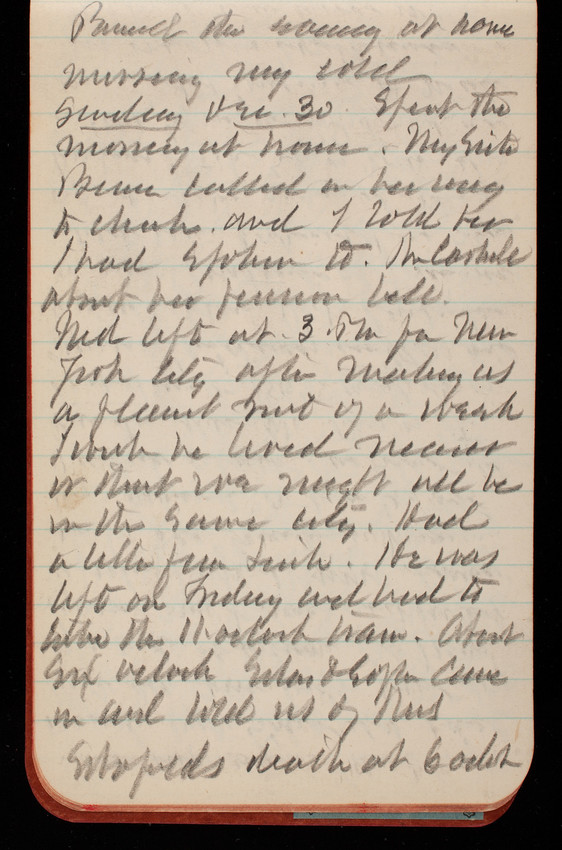 Passed the evening at home
nursing my cold
Sunday Dec. 30. Spent the
morning at home. Mrs
called on her way
to church. and I told her
I had spoken to. Mr Carlisle
about her pension bill.
Ned left at 3. Pm for New
York City after making us
a pleasant visit of a week
I wish he lived nearer
or that we might all be
in the same city. Had
a letter from. He was
left on Friday and had to
take the 11 oclock train. About
Six oclock & Sophie came
in and told us of Mrs
Schofields death at 6 oclock